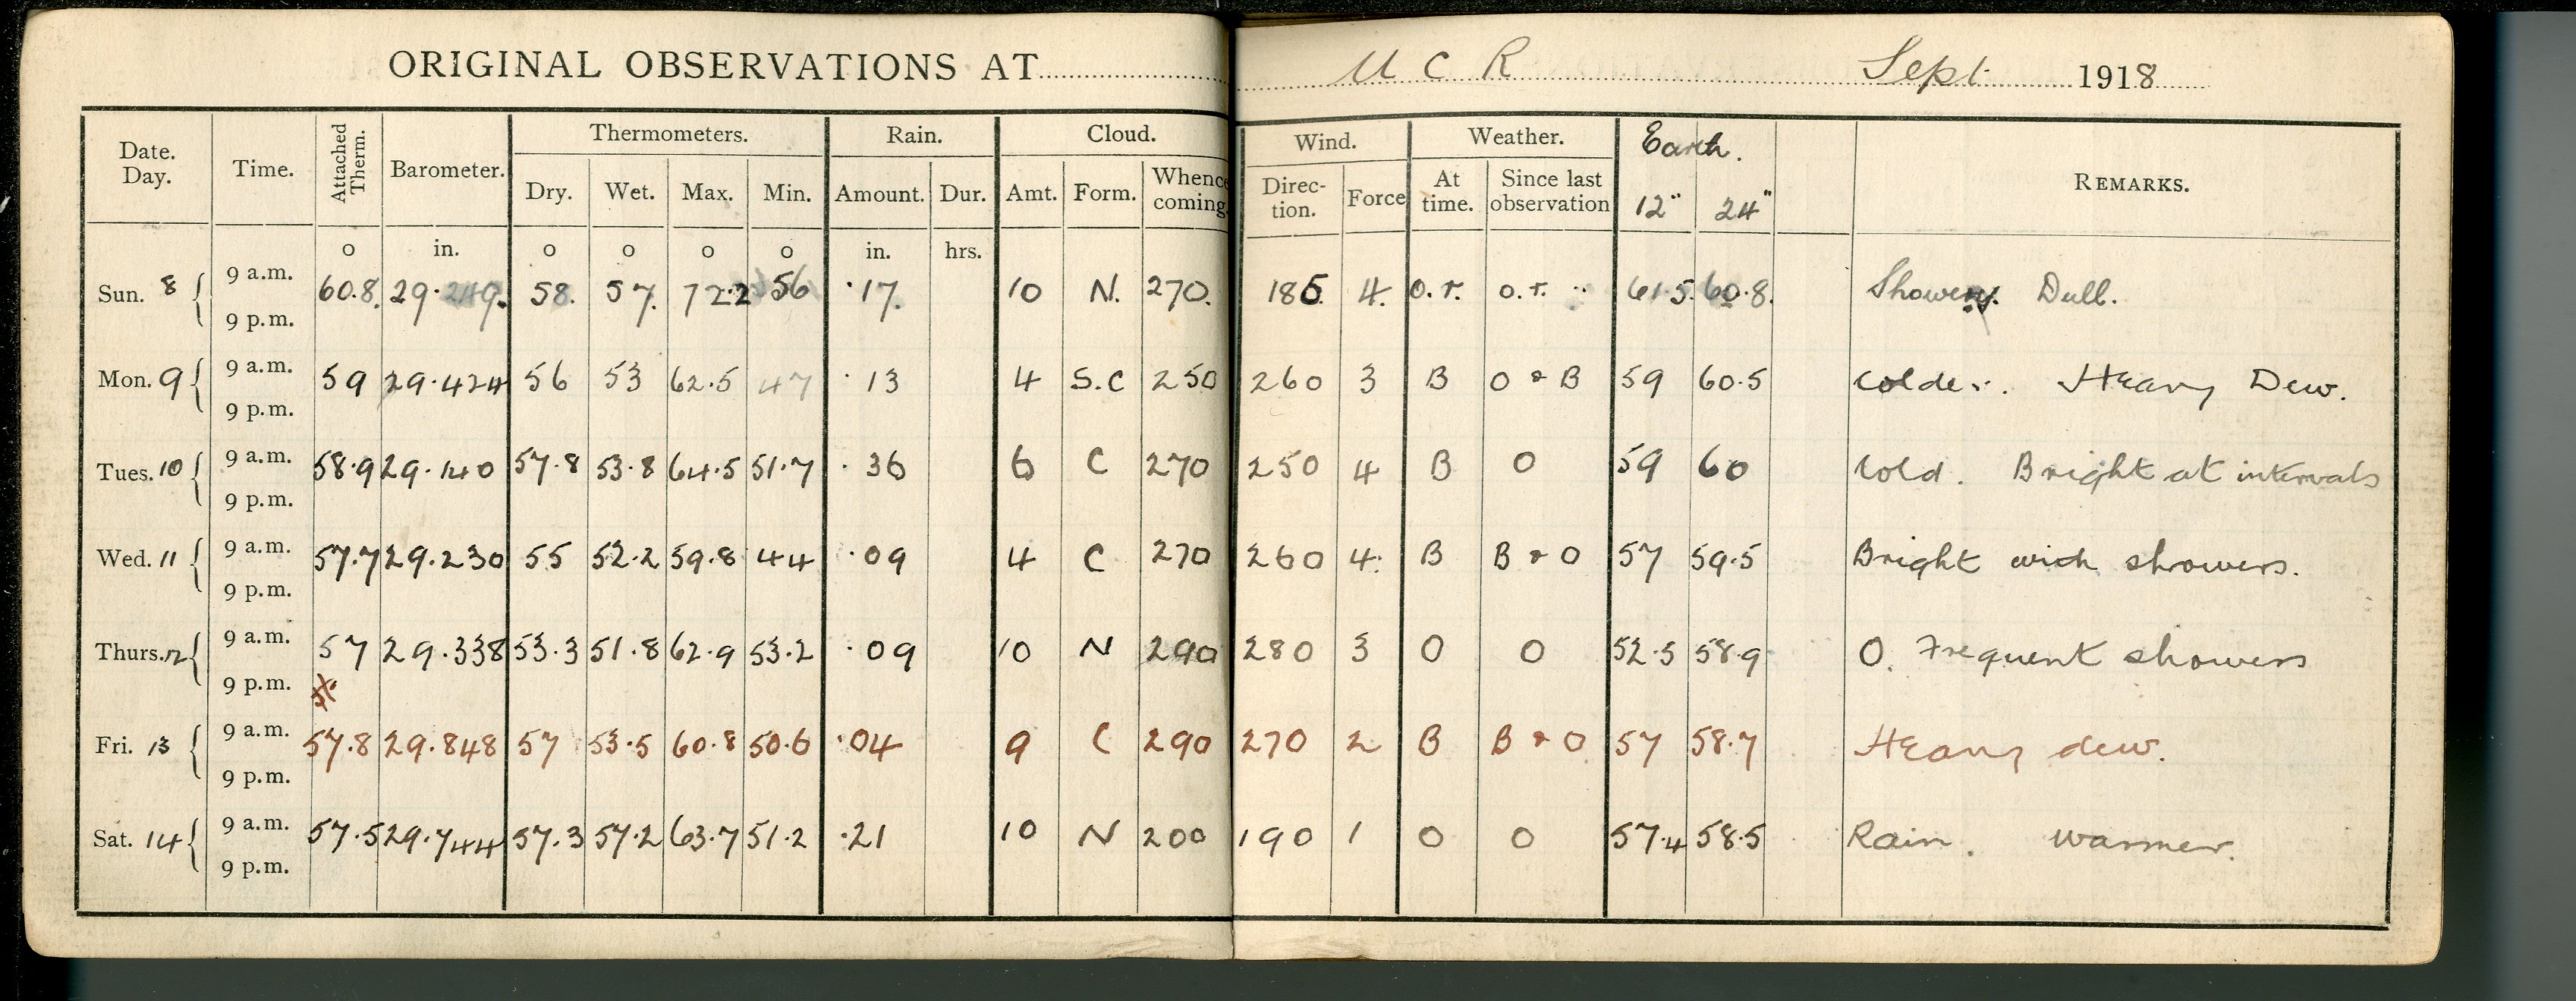 ORIGINAL OBSERVATIONS AT U C R Sept. 1918
Date. Day. Time. Attached Therm. Barometer. Thermometers. Rain. Cloud. Wind. Weather. Earth. REMARKS.
Dry. Wet. Max. Min. Amount. Dur. Amt. Form. Whence coming Direction. Force At time. Since last observation 12" 24"
o in. o o o o in. hrs.
Sun. 8 9 a.m. 60.8. 29. 58. 57. 72.2 56 .17. 10 N. 270. 185 4. o.r. o.r. 61.5. 60.8. Showery. Dull.
9 p.m.
Mon. 9 9 a.m. 59 29.424 56 53 62.5 47 .13 4 S.C 250 260 3 B O & B 59 60.5 Colder. Heavy Dew.
9 p.m.
Tues. 10 9 a.m. 58.9 29.140 57.8 53.8 64.5 51.7 .36 6 C 270 250 4 B O 59 60 Cold. Bright at intervals
9 p.m.
Wed. 11 9 a.m. 57.7 29.230 55 52.2 59.8 44 .09 4 C 270 260 4. B B & O 57 59.5 Bright with showers.
9 p.m.
Thurs. 12 9 a.m. 57 29.338 53.3 51.8 62.9 53.2 .09 10 N 290 280 3 O O 52.5 58.9 O. Frequent showers
9 p.m.
Fri. 13 9 a.m. 57.8 29.848 57 53.5 60.8 50.6 .04 9 C 290 270 2 B B & O 57 58.7 Heavy dew.
9 p.m.
Sat. 14 9 a.m. 57.5 29.744 57.3 57.2 63.7 51.2 .21 10 N 200 190 1 O O 57.4 58.5 Rain. Warmer.
9 p.m.